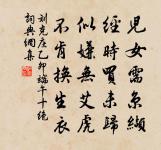 兒女需糸纈
經時買未歸
似嫌無艾虎
不肯換生衣
劉克庄乙卯端午十絕
詞典網集